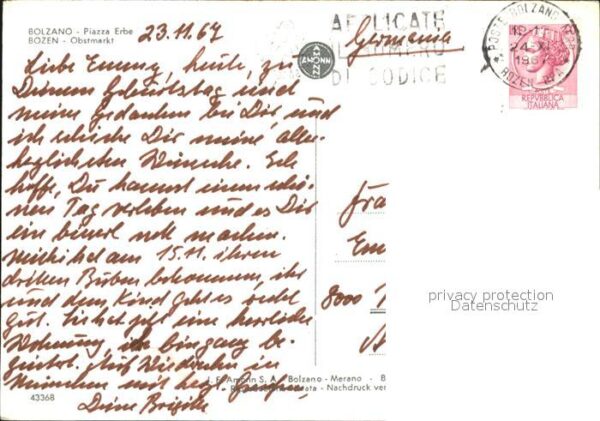 BOLZANO - Piazza Erbe
BOZEN - Obstmarkt
23.11.67
APPLICATE
IL NUMERO
DI CODICE
Germania
POSTE BOLZANO
24.XI
1967
BOZEN
REPVBBLICA
ITALIANA
Liebe Emmy, heute, zu
Deinem Geburtstag sind
meine Gedanken bei Dir und
ich schicke Dir meine aller-
herzlichsten Wünsche. Ich
hoffe, Du kannst einen schö-
nen Tag verleben und es Dir
ein bisserl nett machen.
hat am 15.11. ihren
dritten Buben bekommen, ihr
und dem Kind geht es recht
gut. hat eine herrliche
Wohnung
Auf Wiedersehen in
München mit herzl.
Deine Brigitte
Frau
Em
8000
privacy protection
Datenschutz
J. F. Amonn S. A., Bolzano - Merano - B
- Nachdruck ver
43368